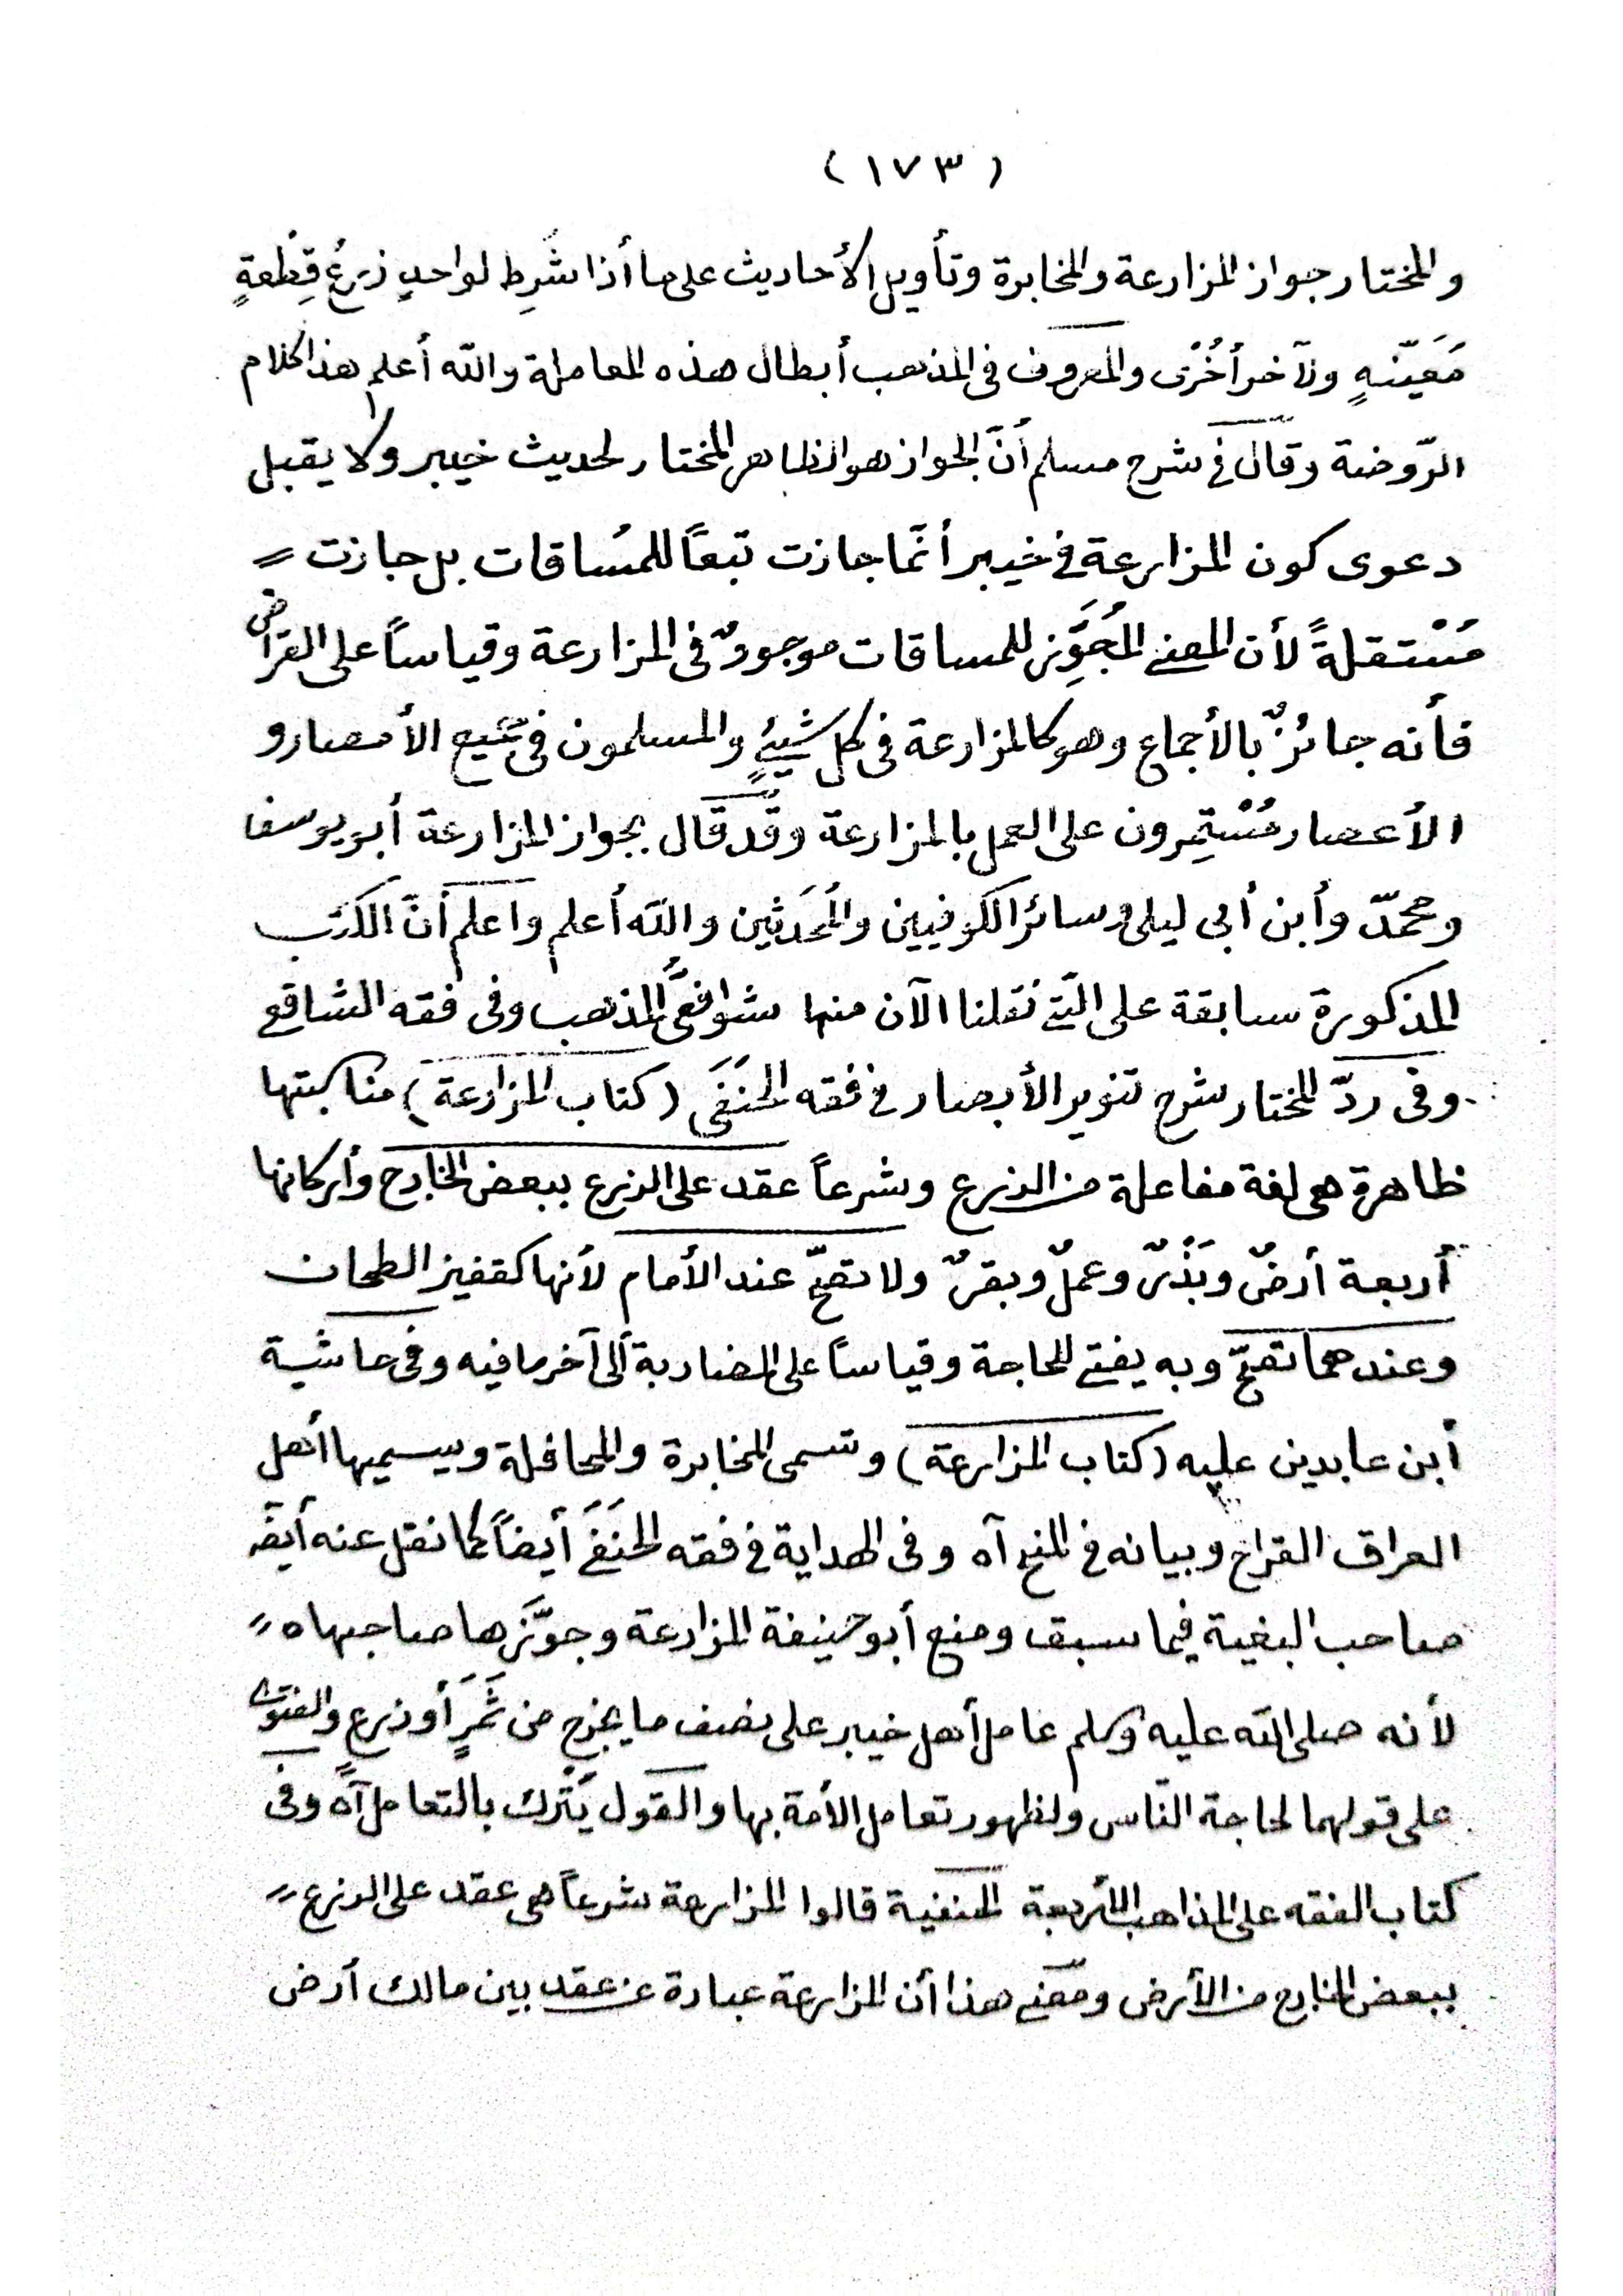 (١٧٣)
والمختار جواز المزارعة والمخابرة وتأويل الأحاديث على ما أذا شَرِط لواحدٍ زرعُ قِطْعةٍ
مَعَيّنةٍ ولآخر أُخْرى والمعروف في المذهب أبطال هذه المعاملة والله أعلم هذا كلام
الرّوضة وقال في شرح مسلم أنّ الجواز هو الظاهر المختار لحديث خيبر ولا يقبل
دعوى كون المزارعة في خيبر أنّما جازت تبعاً للمسُاقات بل جازت =
مُسْتقلةً لأن المعنى المُجَوِّز للمساقات موجودٌ في المزارعة وقياساً على القراض
فأنه جائزٌ بالأجماع وهو كالمزارعة في كل شيئٍ والمسلمون في جميع الأمصار و
الأعصار مُسْتمِرون على العمل بالمزارعة وقد قال بجواز المزارعة أبو يوسف
ومحمّد وأبن أبي ليلى وسائر الكوفيين والمُحَدثين والله أعلم واعلم أنّ الكتب
المذكورة سابقة على الّتى نقلنا الآن منها شوافعىُّ المذهب وفى فقه الشافعى
وفى ردّ المختار شرح تنوير الأبصار في فقه الحَنَفَى (كتاب المزارعة) مناسبتها
ظاهرة هى لغة مفاعلة من الزرع وشرعاً عقد على الزرع ببعض الخارج وأركانها
أربعة أرضٌ وبَذْرٌ وعملٌ وبقرٌ ولا تصحّ عند الأمام لأنها كقفيز الطحان
وعندهما تصحّ وبه يفتى للحاجة وقياساً على المضاربة ألى آخر ما فيه وفى حاشية
أبن عابدين عليه (كتاب المزارعة) وتسمى المخابرة والمحاقلة ويسميها أهل
العراق القراح وبيانه في المنح آه وفى الهداية في فقه الحَنَفَى أيضاً كما نقل عنه أيضاً
صاحب البغية فيما سبق ومنع أبو حنيفة المزارعة وجوّزَها صاحباه =
لأنه صلى الله عليه وسلم عامل أهل خيبر على نصف ما يخرج من ثَمَرٍ أو زرع والفتوى
على قولهما لحاجة النّاس ولظهور تعامل الأمة بها والقول يُتْرك بالتعامل آه وفى
كتاب الفقه على المذاهب الأربعة الحنفية قالوا المزارعة شرعاً هى عقد على الزرع =
ببعض الخارج من الأرض ومعنى هذا أن المزارعة عبارة عن عقد بين مالك أرض